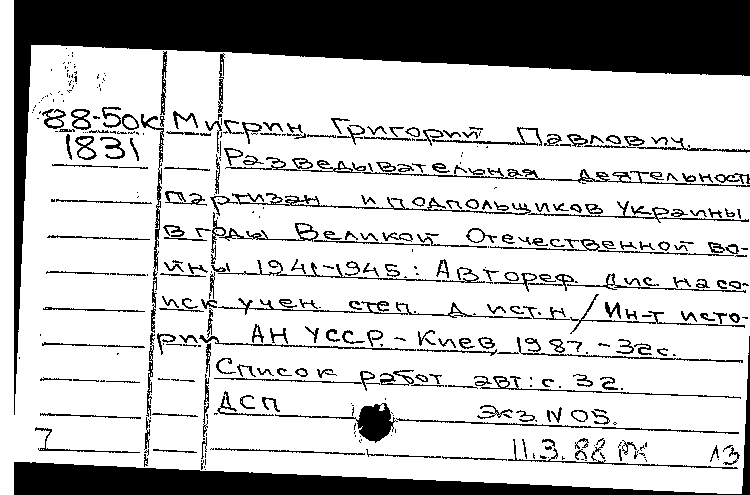 88-50к Мигрин, Григорий Павлович.
1831 Разведывательная деятельность
партизан и подпольщиков Украины
в годы Великой Отечественной во-
йны 1941-1945.: Автореф. дис. на со-
иск. учен. степ. д. ист. н. / Ин-т исто-
рии АН УССР. - Киев, 1987. - 32с.
Список работ авт.: с. 32.
ДСП Экз. N 05.
7 11.3.88 РК 13